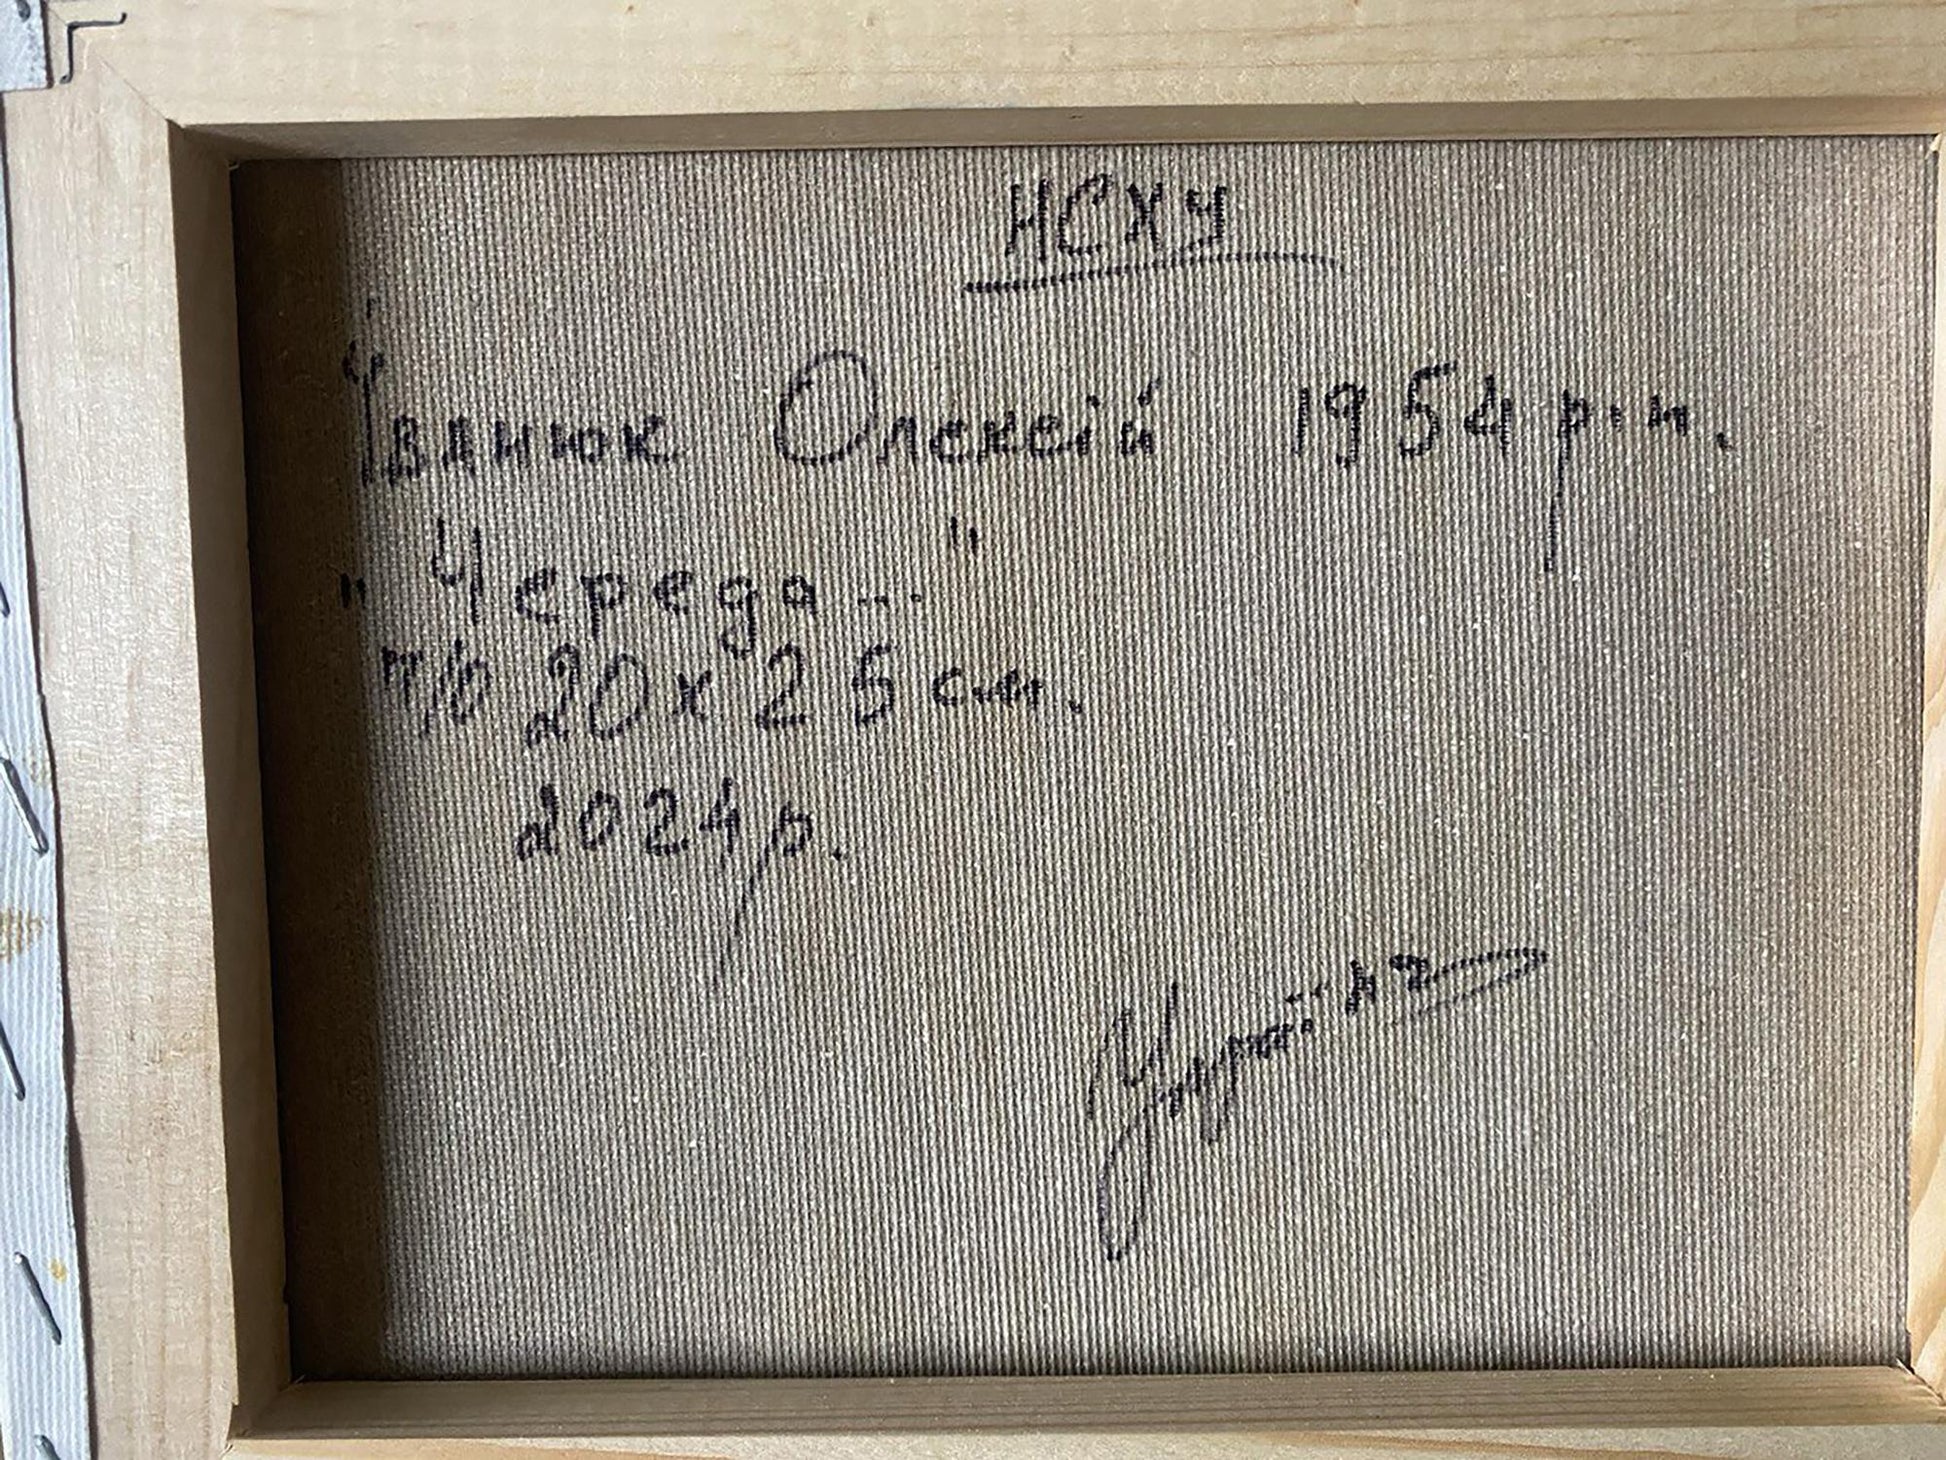 НСХУ
Іванюк Олексій 1954 р.н.
"Череда..."
п/о 20х25 см.
2024 р.